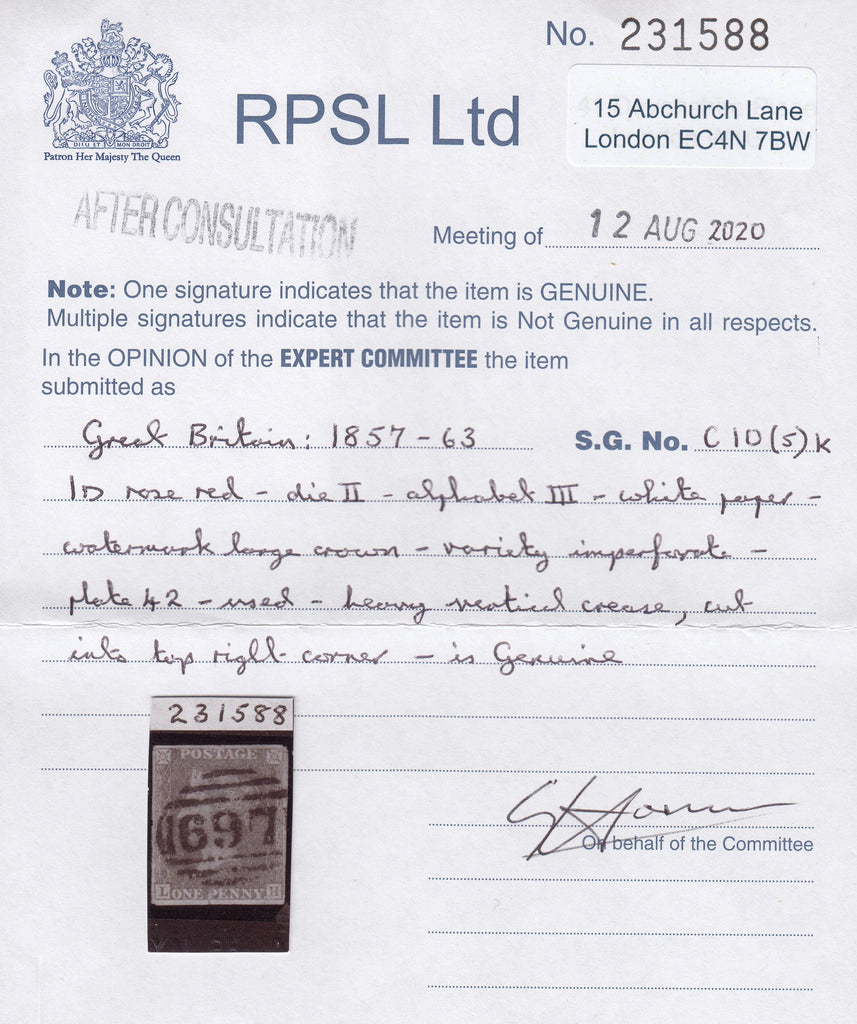 No. 231588
RPSL Ltd
15 Abchurch Lane
London EC4N 7BW
DIEU ET MON DROIT
Patron Her Majesty The Queen
AFTER CONSULTATION
Meeting of 12 AUG 2020
Note: One signature indicates that the item is GENUINE.
Multiple signatures indicate that the item is Not Genuine in all respects.
In the OPINION of the EXPERT COMMITTEE the item
submitted as
Great Britain: 1857-63 S.G. No. C10(5)k
1D rose red - die II - alphabet III - white paper -
watermark large crown - variety imperforate -
plate 42 - used - heavy vertical crease, cut
into top right corner - is Genuine
231588
POSTAGE
697
L ONE PENNY H
On behalf of the Committee